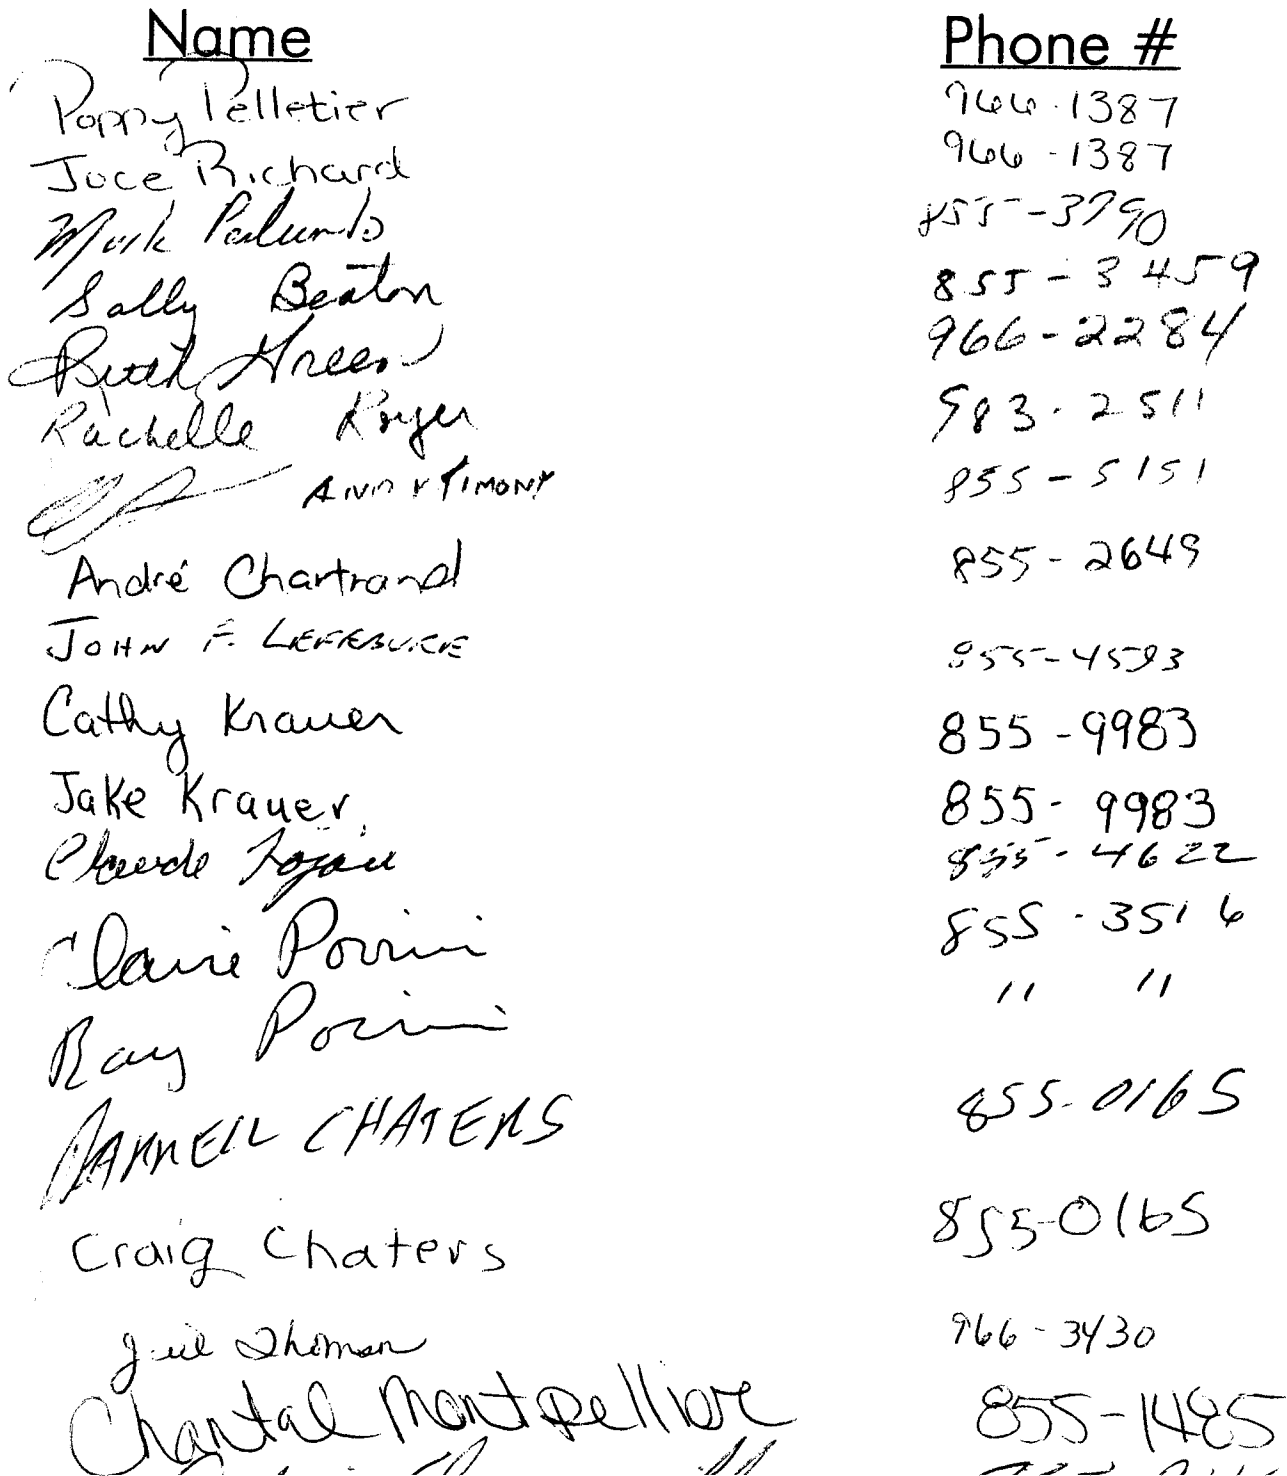 Name Phone #
Poppy Pelletier 966-1387
Joce Richard 966-1387
Mark Palumbo 855-3790
Sally Beaton 855-3459
Ruth Green 966-2284
Rachelle Royer 983-2511
ANDY TIMONY 855-5151
André Chartrand 855-2649
JOHN F. LEFEBVRE 855-4593
Cathy Krauer 855-9983
Jake Krauer 855-9983
Claude 855-4622
Claire Porrini 855-3516
Ray Porrini " "
DARRELL CHATERS 855-0165
Craig Chaters 855-0165
966-3430
Chantal Montpellier 855-1485